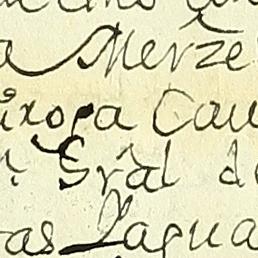 a Merze
uiroga Cau
n. Gral de
ras Lagua